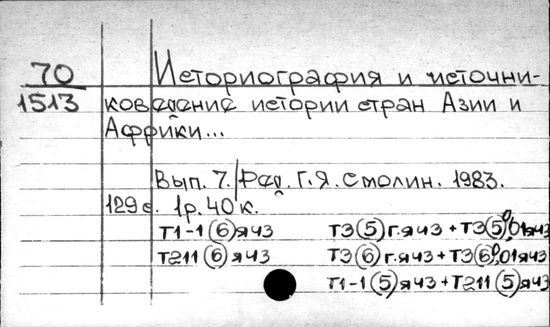 70 Историография и источни-
1513 коведение истории стран Азии и
Африки...
Вып. 7. / Ред. Г.Я. Смолин. 1983.
129 с. 1р. 40 к.
Т1-1(6)я43 Т3(5)г.я43 + Т3(5)0,01я43
Т211(6)я43 Т3(6)г.я43 + Т3(6)0,01я43
Т1-1(5)я43 + Т211(5)я43